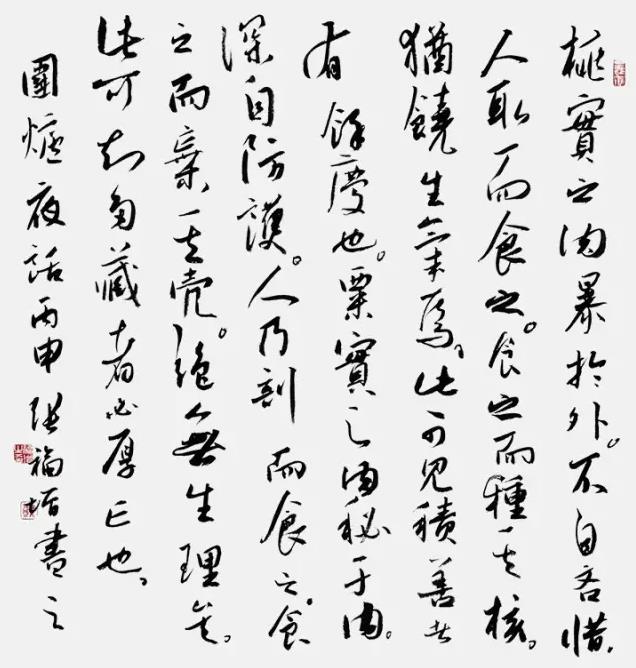 桃實之肉暴於外。不自吝惜,
人取而食之。食之而種其核。
猶饒生氣焉,此可見積善者
有餘慶也。栗實之肉秘于内。
深自防護。人乃剖而食之。食
之而棄其壳。絶無生理矣。
此可知多藏者必厚亡也。
圍爐夜話丙申張福書之